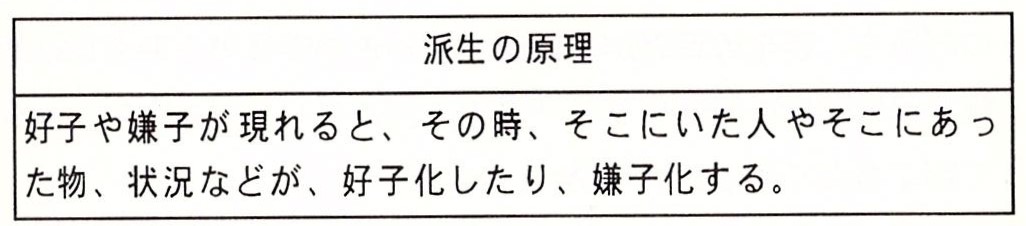 派生の原理
好子や嫌子が現れると、その時、そこにいた人やそこにあっ
た物、状況などが、好子化したり、嫌子化する。